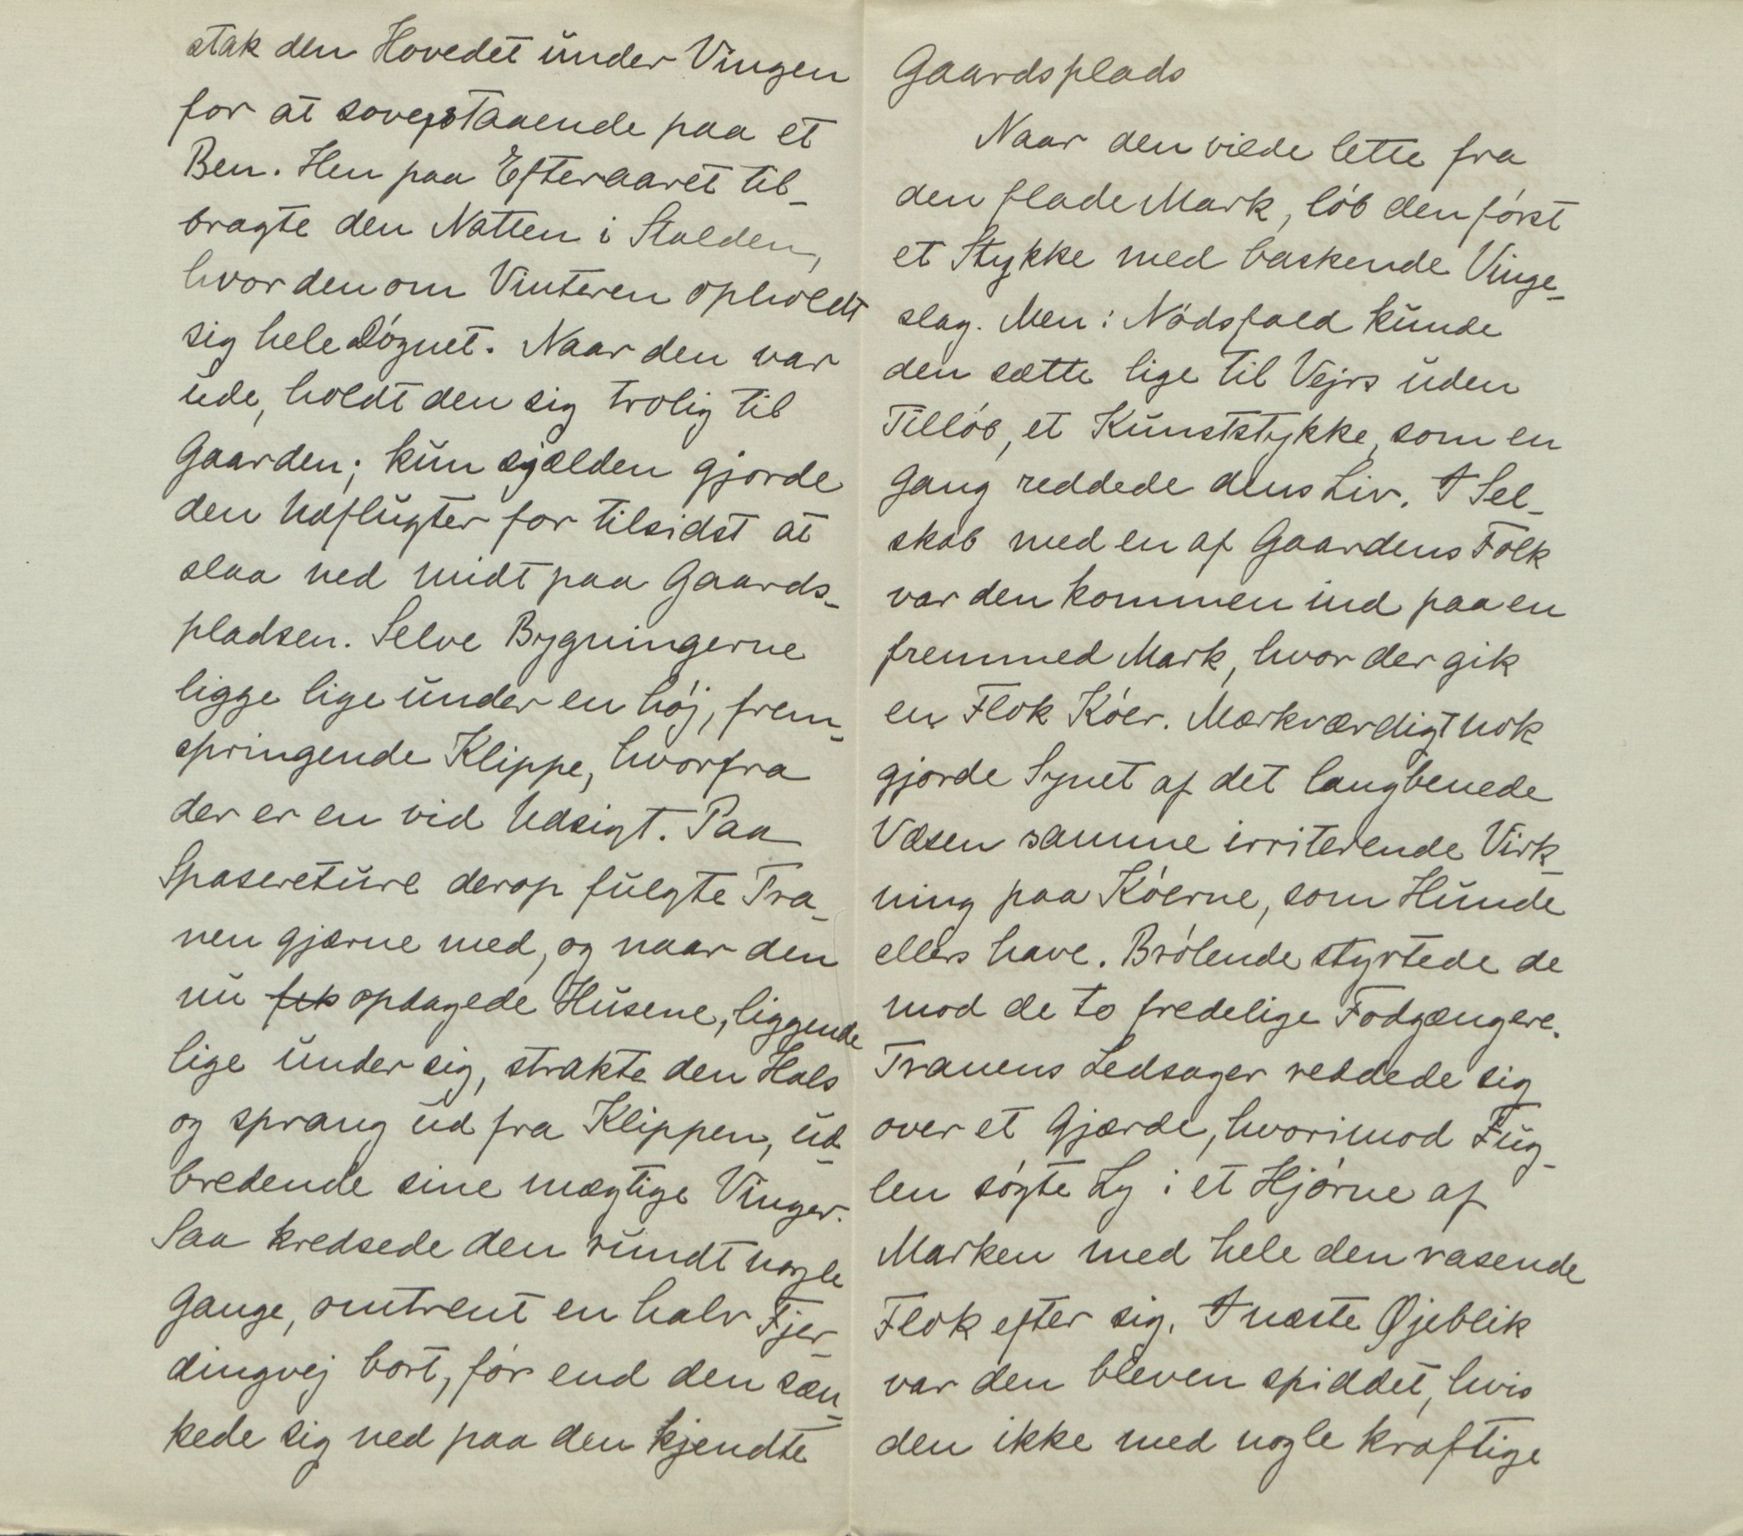 stak den Hovedet under Vingen
for at sove, staaende paa et
Ben. Hen paa Efteraaret til-
bragte den Natten i Stalden,
hvor den om Vinteren opholdt
sig hele Døgnet. Naar den var
ude, holdt den sig trolig til
Gaarden; kun sjælden gjorde
den Udflugter for tilsidst at
slaa ned midt paa Gaards-
pladsen. Selve Bygningerne
ligge lige under en høj, frem-
springende Klippe, hvorfra
der er en vid Udsigt. Paa
Spasereture derop fulgte Tra-
nen gjærne med, og naar den
nu fik opdagede Husene, liggende
lige under sig, strakte den Hals
og sprang ud fra Klippen, ud-
bredende sine mægtige Vinger.
Saa kredsede den rundt nogle
Gange, omtrent en halv Fjer-
dingvej bort, før end den sæn-
kede sig ned paa den kjendte
Gaardsplads
Naar den vilde lette fra
den flade Mark, løb den først
et Stykke med baskende Vinge-
slag. Men i Nødsfald kunde
den sætte lige til Vejrs uden
Tilløb, et Kunststykke, som en
Gang reddede dens Liv. I Sel-
skab med en af Gaardens Folk
var den kommen ind paa en
fremmed Mark, hvor der gik
en Flok Køer. Mærkværdigt nok
gjorde Synet af det langbenede
Væsen samme irriterende Virk-
ning paa Køerne, som Hunde
ellers have. Brølende styrtede de
mod de to fredelige Fodgængere.
Tranens Ledsager reddede sig
over et Gjærde, hvorimod Fug-
len søgte Ly i et Hjørne af
Marken med hele den rasende
Flok efter sig. I næste Øjeblik
var den bleven spiddet, hvis
den ikke med nogle kraftige